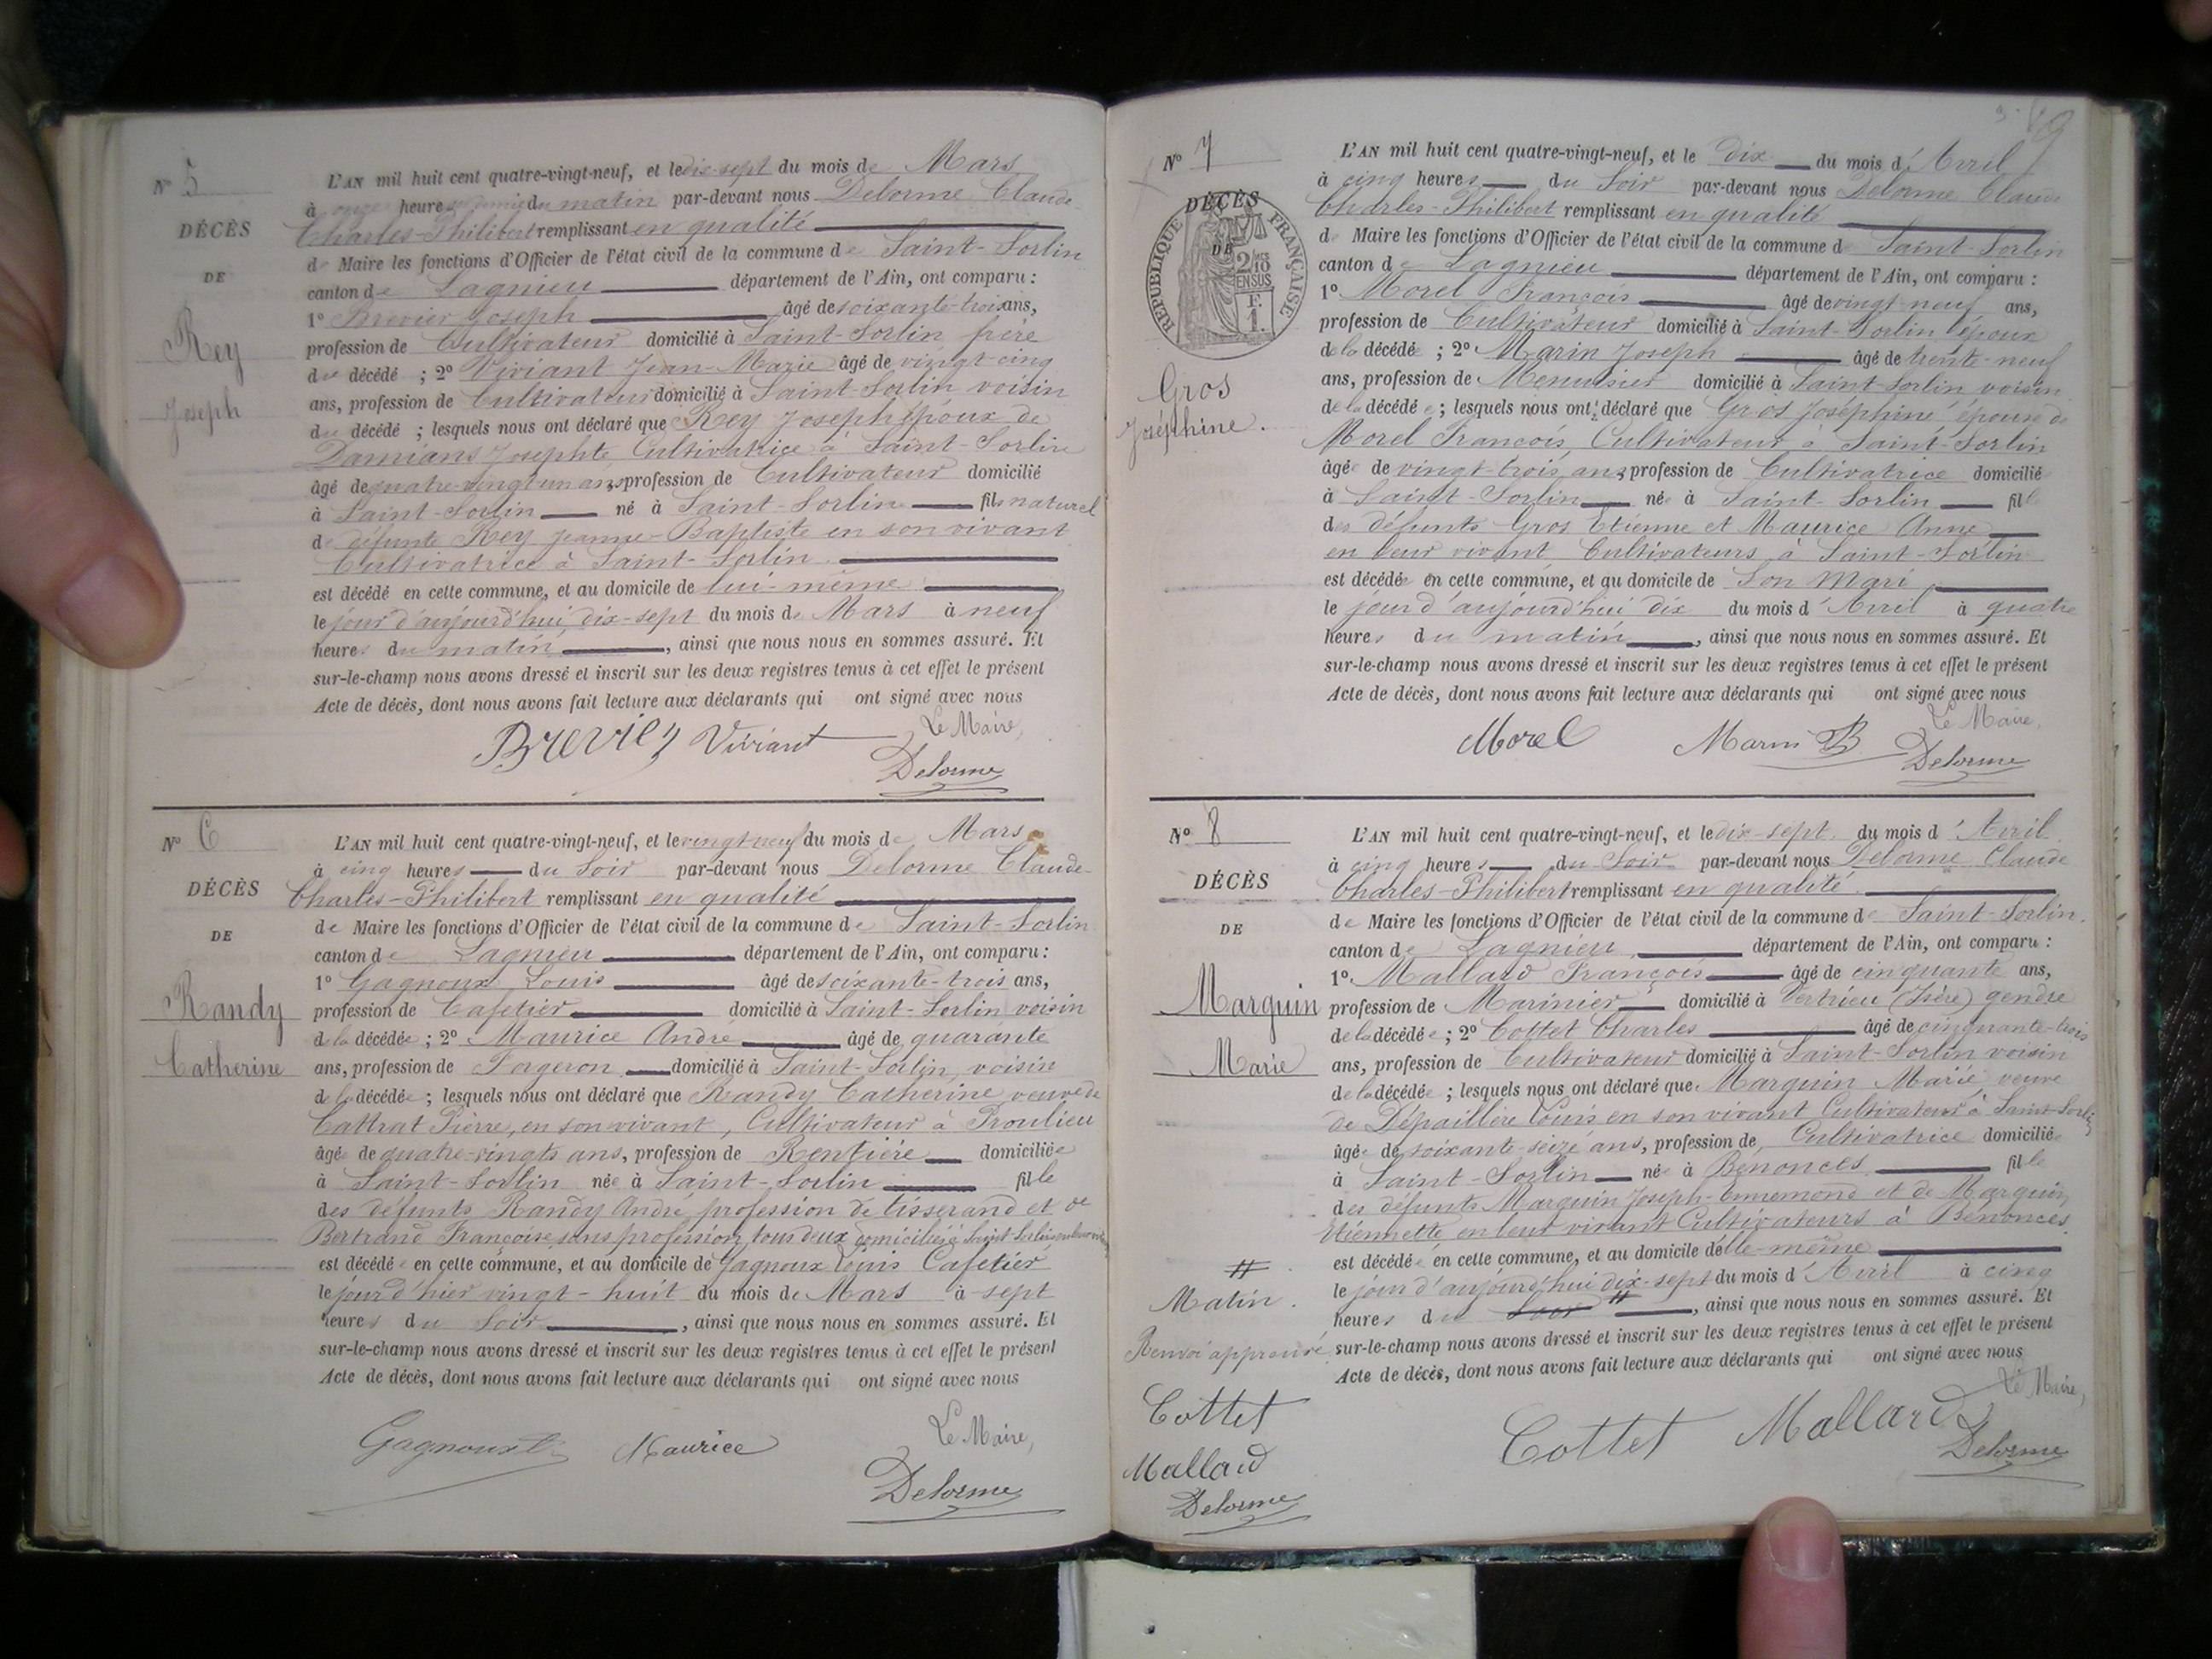 N° 5
DÉCÈS
DE
Rey
Joseph
L'AN mil huit cent quatre-vingt-neuf, et le dix-sept du mois de Mars
à onze heures du matin par-devant nous Delorme Claude-
Charles-Philibert remplissant en qualité
de Maire les fonctions d'Officier de l'état civil de la commune de Saint-Sorlin
canton de Lagnieu département de l'Ain, ont comparu :
1° Brevier Joseph âgé de soixante-trois ans,
profession de Cultivateur domicilié à Saint-Sorlin frère
du décédé ; 2° Viviant Jean-Marie âgé de vingt-cinq
ans, profession de Cultivateur domicilié à Saint-Sorlin voisin
du décédé ; lesquels nous ont déclaré que Rey Joseph époux de
Damians Josephte Cultivatrice à Saint-Sorlin
âgé de quatre-vingt un ans, profession de Cultivateur domicilié
à Saint-Sorlin né à Saint-Sorlin fils naturel
de défunte Rey Jeanne-Baptiste en son vivant
Cultivatrice à Saint-Sorlin
est décédé en cette commune, et au domicile de lui-même
le jour d'aujourd'hui dix-sept du mois de Mars à neuf
heures du matin, ainsi que nous nous en sommes assuré. Et
sur-le-champ nous avons dressé et inscrit sur les deux registres tenus à cet effet le présent
Acte de décès, dont nous avons fait lecture aux déclarants qui ont signé avec nous
Le Maire,
Brevier Viviant
Delorme
N° 6
DÉCÈS
DE
Randy
Catherine
L'AN mil huit cent quatre-vingt-neuf, et le vingt neuf du mois de Mars
à cinq heures du Soir par-devant nous Delorme Claude-
Charles-Philibert remplissant en qualité
de Maire les fonctions d'Officier de l'état civil de la commune de Saint-Sorlin
canton de Lagnieu département de l'Ain, ont comparu :
1° Gagnoux Louis âgé de soixante-trois ans,
profession de Cafetier domicilié à Saint-Sorlin voisin
de la décédée ; 2° Maurice André âgé de quarante
ans, profession de Forgeron domicilié à Saint-Sorlin, voisin
de la décédée ; lesquels nous ont déclaré que Randy Catherine veuve de
Cattrat Pierre, en son vivant, Cultivateur à Proulieu
âgée de quatre-vingts ans, profession de Rentière domiciliée
à Saint-Sorlin née à Saint-Sorlin fille
des défunts Randy André profession de tisserand et de
Bertrand Françoise sans profession, tous deux domiciliés à Saint-Sorlin
est décédée en cette commune, et au domicile de Gagnoux Louis Cafetier
le jour d'hier vingt-huit du mois de Mars à sept
heures du Soir, ainsi que nous nous en sommes assuré. Et
sur-le-champ nous avons dressé et inscrit sur les deux registres tenus à cet effet le présent
Acte de décès, dont nous avons fait lecture aux déclarants qui ont signé avec nous
Le Maire,
Gagnoux Maurice
Delorme
N° 7
DÉCÈS
DE
RÉPUBLIQUE FRANÇAISE
2/10 EN SUS
F.
1.
Gros
Joséphine.
L'AN mil huit cent quatre-vingt-neuf, et le dix du mois d'Avril
à cinq heures du Soir par-devant nous Delorme Claude
Charles-Philibert remplissant en qualité
de Maire les fonctions d'Officier de l'état civil de la commune de Saint-Sorlin
canton de Lagnieu département de l'Ain, ont comparu :
1° Morel François âgé de vingt-neuf ans,
profession de Cultivateur domicilié à Saint-Sorlin époux
de la décédé ; 2° Marin Joseph âgé de trente-neuf
ans, profession de Menuisier domicilié à Saint-Sorlin voisin
de la décédée ; lesquels nous ont déclaré que Gros Joséphine épouse de
Morel François, Cultivateur à Saint-Sorlin
âgée de vingt-trois ans, profession de Cultivatrice domicilié
à Saint-Sorlin née à Saint-Sorlin fille
des défunts Gros Etienne et Maurice Anne
en leur vivant Cultivateurs à Saint-Sorlin
est décédée en cette commune, et au domicile de Son Mari
le jour d'aujourd'hui dix du mois d'Avril à quatre
heures du matin, ainsi que nous nous en sommes assuré. Et
sur-le-champ nous avons dressé et inscrit sur les deux registres tenus à cet effet le présent
Acte de décès, dont nous avons fait lecture aux déclarants qui ont signé avec nous
Le Maire,
Morel Marin
Delorme
N° 8
DÉCÈS
DE
Marguin
Marie
L'AN mil huit cent quatre-vingt-neuf, et le dix-sept du mois d'Avril
à cinq heures du Soir par-devant nous Delorme Claude
Charles-Philibert remplissant en qualité
de Maire les fonctions d'Officier de l'état civil de la commune de Saint-Sorlin.
canton de Lagnieu département de l'Ain, ont comparu :
1° Mallard François âgé de cinquante ans,
profession de Marinier domicilié à Vertrieu (Isère) gendre
de la décédée ; 2° Cottet Charles âgé de cinquante-trois
ans, profession de Cultivateur domicilié à Saint-Sorlin voisin
de la décédée ; lesquels nous ont déclaré que Marguin Marie, veuve
de Dépaillère Louis en son vivant Cultivateur à Saint-Sorlin
âgée de soixante-seize ans, profession de Cultivatrice domiciliée
à Saint-Sorlin née à Benonces fille
des défunts Marguin Joseph-Ennemond et de Marguin
Etiennette en leur vivant Cultivateurs à Bénonces
est décédée en cette commune, et au domicile d'elle-même
le jour d'aujourd'hui dix-sept du mois d'Avril à cinq
heures du soir #, ainsi que nous nous en sommes assuré. Et
sur-le-champ nous avons dressé et inscrit sur les deux registres tenus à cet effet le présent
Acte de décès, dont nous avons fait lecture aux déclarants qui ont signé avec nous
Le Maire,
Cottet Mallard
Delorme
#
Matin.
Renvoi approuvé
Cottet
Mallard
Delorme